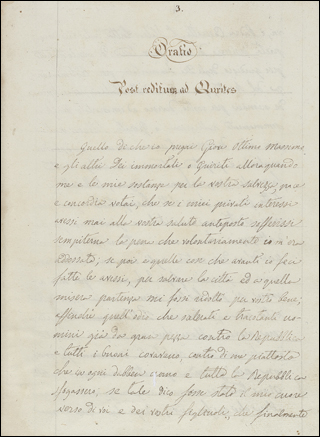 3.
Oratio
Post reditum ad Quirites
Quello che io pregai Giove Ottimo Massimo
e gli altri Dei immortali o Quiriti allora quando
me e le mie sostanze per la vostra salvezza, pace
e concordia votai, che se i miei privati interessi
avessi mai alla vostra salute anteposto soffrissi
sempiterna la pena che volontariamente io m'era
se poi e quelle cose che avanti io feci
fatte le avessi, per salvare la città ed a quella
misera partenza mi fossi ridotto, per vostro bene,
quell'odio che scelerati e uo
mini già da gran pezza contro la Repubblica
e tutti i buoni covavano, contro di me piuttosto
che ogni e tutta la Repubblica
sfogassero; se tale dico fosse stato il mio cuore
verso di voi e dei vostri figliuoli, che finalmente